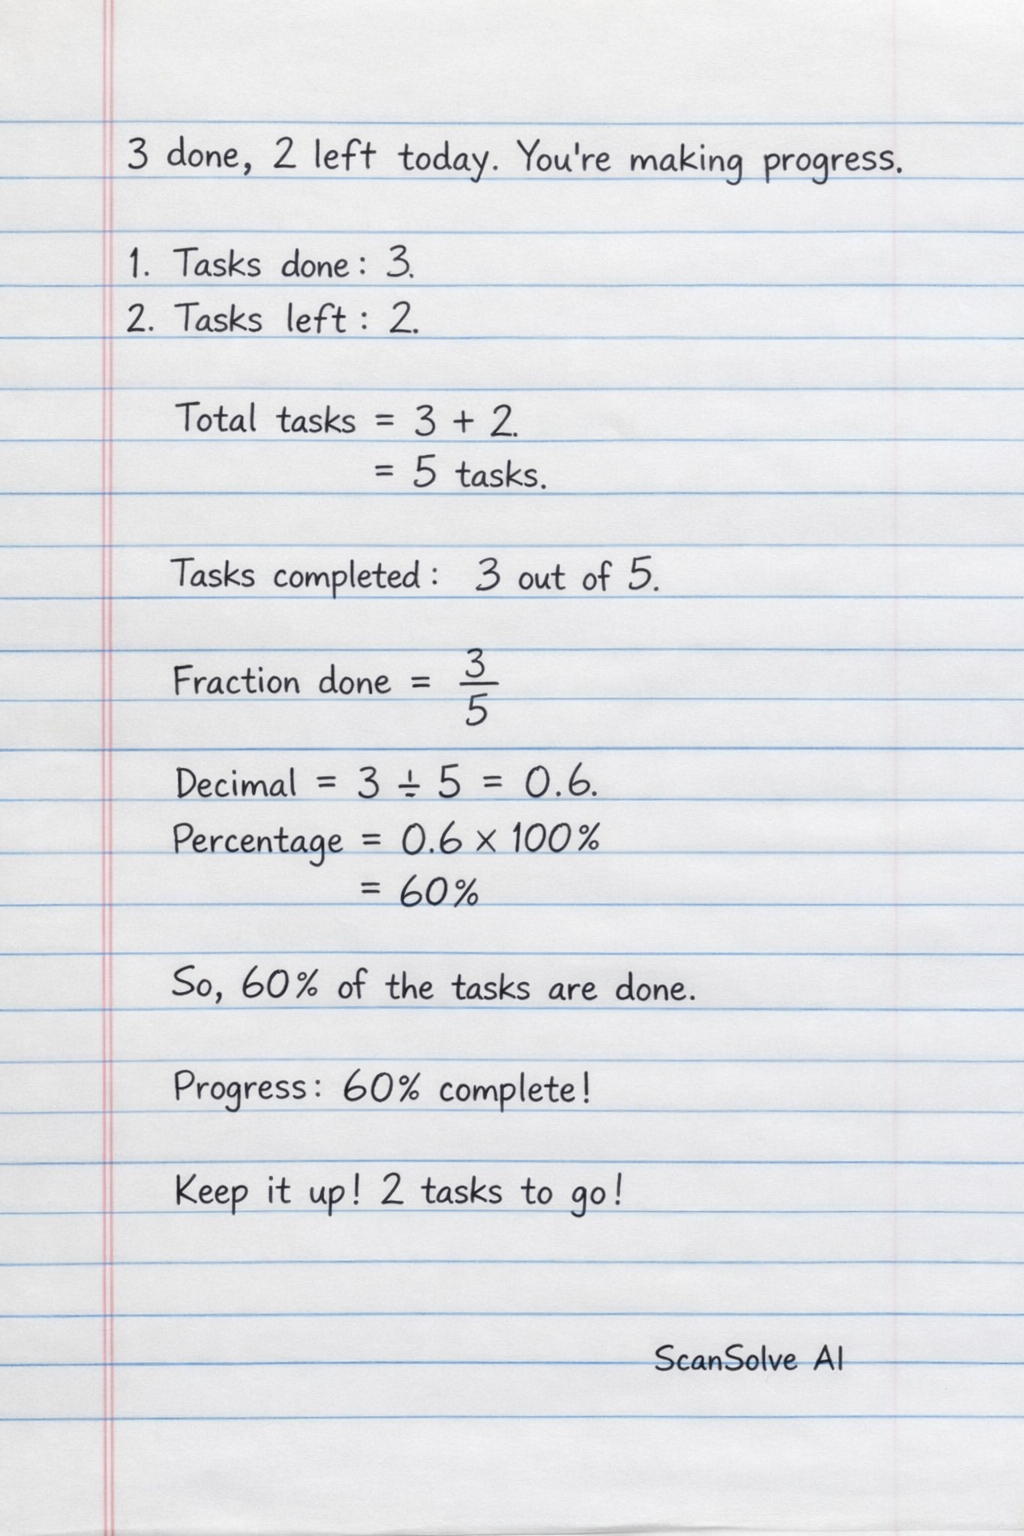 3 done, 2 left today. You're making progress.
1. Tasks done: 3.
2. Tasks left: 2.
Total tasks = 3 + 2.
= 5 tasks.
Tasks completed: 3 out of 5.
Fraction done = 3/5
Decimal = 3 ÷ 5 = 0.6.
Percentage = 0.6 × 100%
= 60%
So, 60% of the tasks are done.
Progress: 60% complete!
Keep it up! 2 tasks to go!
ScanSolve AI